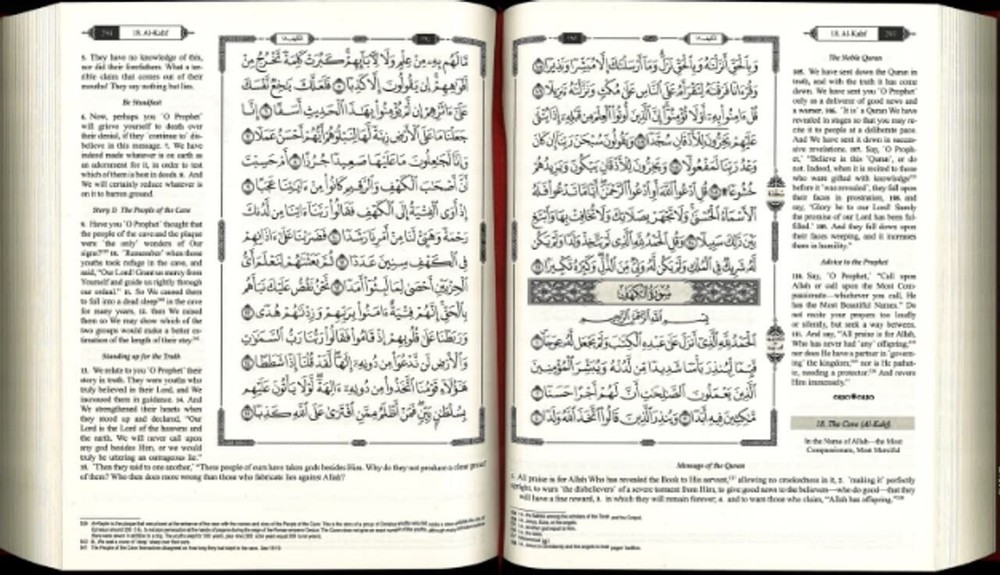 18. Al-Kahf 293
وَبِالْحَقِّ أَنزَلْنَاهُ وَبِالْحَقِّ نَزَلَ وَمَا أَرْسَلْنَاكَ إِلَّا مُبَشِّرًا وَنَذِيرًا ١٠٥
وَقُرْآنًا فَرَقْنَاهُ لِتَقْرَأَهُ عَلَى النَّاسِ عَلَىٰ مُكْثٍ وَنَزَّلْنَاهُ تَنزِيلًا ١٠٦
قُلْ آمِنُوا بِهِ أَوْ لَا تُؤْمِنُوا إِنَّ الَّذِينَ أُوتُوا الْعِلْمَ مِن قَبْلِهِ إِذَا يُتْلَىٰ
عَلَيْهِمْ يَخِرُّونَ لِلْأَذْقَانِ سُجَّدًا ١٠٧ وَيَقُولُونَ سُبْحَانَ رَبِّنَا إِن كَانَ
وَعْدُ رَبِّنَا لَمَفْعُولًا ١٠٨ وَيَخِرُّونَ لِلْأَذْقَانِ يَبْكُونَ وَيَزِيدُهُمْ
خُشُوعًا ١٠٩ قُلِ ادْعُوا اللَّهَ أَوِ ادْعُوا الرَّحْمَٰنَ أَيًّا مَّا تَدْعُوا فَلَهُ
الْأَسْمَاءُ الْحُسْنَىٰ وَلَا تَجْهَرْ بِصَلَاتِكَ وَلَا تُخَافِتْ بِهَا وَابْتَغِ
بَيْنَ ذَٰلِكَ سَبِيلًا ١١٠ وَقُلِ الْحَمْدُ لِلَّهِ الَّذِي لَمْ يَتَّخِذْ وَلَدًا وَلَمْ يَكُن
لَّهُ شَرِيكٌ فِي الْمُلْكِ وَلَمْ يَكُن لَّهُ وَلِيٌّ مِّنَ الذُّلِّ وَكَبِّرْهُ تَكْبِيرًا ١١١
سُورَةُ الْكَهْفِ
بِسْمِ اللَّهِ الرَّحْمَٰنِ الرَّحِيمِ
الْحَمْدُ لِلَّهِ الَّذِي أَنزَلَ عَلَىٰ عَبْدِهِ الْكِتَابَ وَلَمْ يَجْعَل لَّهُ عِوَجًا ١
قَيِّمًا لِّيُنذِرَ بَأْسًا شَدِيدًا مِّن لَّدُنْهُ وَيُبَشِّرَ الْمُؤْمِنِينَ
الَّذِينَ يَعْمَلُونَ الصَّالِحَاتِ أَنَّ لَهُمْ أَجْرًا حَسَنًا ٢
مَّاكِثِينَ فِيهِ أَبَدًا ٣ وَيُنذِرَ الَّذِينَ قَالُوا اتَّخَذَ اللَّهُ وَلَدًا ٤
The Noble Quran
105. We have sent down the Quran in
truth, and with the truth it has come
down. We have sent you ˹O Prophet˺
only as a deliverer of good news and
a warner. 106. ˹It is˺ a Quran We have
revealed in stages so that you may re-
cite it to people at a deliberate pace.
And We have sent it down in succes-
sive revelations. 107. Say, ˹O Proph-
et,˺ “Believe in this ˹Quran˺, or do
not. Indeed, when it is recited to those
who were gifted with knowledge
before it ˹was revealed˺, they fall upon
their faces in prostration, 108. and
say, ‘Glory be to our Lord! Surely
the promise of our Lord has been ful-
filled.’ 109. And they fall down upon
their faces weeping, and it increases
them in humility.”
Advice to the Prophet
110. Say, ˹O Prophet,˺ “Call upon
Allah or call upon the Most Com-
passionate—whichever you call, He
has the Most Beautiful Names.” Do
not recite your prayers too loudly
or silently, but seek a way between.
111. And say, “All praise is for Allah,
Who has never had ˹any˺ offspring;
nor does He have a partner in ˹govern-
ing˺ the kingdom; nor is He pathet-
ic, needing a protector. And revere
Him immensely.”
18. The Cave (Al-Kahf)
In the Name of Allah—the Most
Compassionate, Most Merciful
Message of the Quran
1. All praise is for Allah Who has revealed the Book to His servant, allowing no crookedness in it, 2. ˹making it˺ perfectly
upright, to warn ˹the disbelievers˺ of a severe torment from Him, to give good news to the believers—who do good—that they
will have a fine reward, 3. in which they will remain forever; 4. and to warn those who claim, “Allah has offspring.”
294 18. Al-Kahf
مَّا لَهُم بِهِ مِنْ عِلْمٍ وَلَا لِآبَائِهِمْ كَبُرَتْ كَلِمَةً تَخْرُجُ مِنْ
أَفْوَاهِهِمْ إِن يَقُولُونَ إِلَّا كَذِبًا ٥ فَلَعَلَّكَ بَاخِعٌ نَّفْسَكَ
عَلَىٰ آثَارِهِمْ إِن لَّمْ يُؤْمِنُوا بِهَٰذَا الْحَدِيثِ أَسَفًا ٦ إِنَّا
جَعَلْنَا مَا عَلَى الْأَرْضِ زِينَةً لَّهَا لِنَبْلُوَهُمْ أَيُّهُمْ أَحْسَنُ عَمَلًا ٧
وَإِنَّا لَجَاعِلُونَ مَا عَلَيْهَا صَعِيدًا جُرُزًا ٨ أَمْ حَسِبْتَ
أَنَّ أَصْحَابَ الْكَهْفِ وَالرَّقِيمِ كَانُوا مِنْ آيَاتِنَا عَجَبًا ٩
إِذْ أَوَى الْفِتْيَةُ إِلَى الْكَهْفِ فَقَالُوا رَبَّنَا آتِنَا مِن لَّدُنكَ
رَحْمَةً وَهَيِّئْ لَنَا مِنْ أَمْرِنَا رَشَدًا ١٠ فَضَرَبْنَا عَلَىٰ آذَانِهِمْ
فِي الْكَهْفِ سِنِينَ عَدَدًا ١١ ثُمَّ بَعَثْنَاهُمْ لِنَعْلَمَ أَيُّ
الْحِزْبَيْنِ أَحْصَىٰ لِمَا لَبِثُوا أَمَدًا ١٢ نَّحْنُ نَقُصُّ عَلَيْكَ نَبَأَهُم
بِالْحَقِّ إِنَّهُمْ فِتْيَةٌ آمَنُوا بِرَبِّهِمْ وَزِدْنَاهُمْ هُدًى ١٣
وَرَبَطْنَا عَلَىٰ قُلُوبِهِمْ إِذْ قَامُوا فَقَالُوا رَبُّنَا رَبُّ السَّمَاوَاتِ
وَالْأَرْضِ لَن نَّدْعُوَ مِن دُونِهِ إِلَٰهًا لَّقَدْ قُلْنَا إِذًا شَطَطًا ١٤
هَٰؤُلَاءِ قَوْمُنَا اتَّخَذُوا مِن دُونِهِ آلِهَةً لَّوْلَا يَأْتُونَ عَلَيْهِم
بِسُلْطَانٍ بَيِّنٍ فَمَنْ أَظْلَمُ مِمَّنِ افْتَرَىٰ عَلَى اللَّهِ كَذِبًا ١٥
5. They have no knowledge of this,
nor did their forefathers. What a ter-
rible claim that comes out of their
mouths! They say nothing but lies.
Be Steadfast
6. Now, perhaps you ˹O Prophet˺
will grieve yourself to death over
their denial, if they ˹continue to˺ dis-
believe in this message. 7. We have
indeed made whatever is on earth as
an adornment for it, in order to test
which of them is best in deeds. 8. And
We will certainly reduce whatever is
on it to barren ground.
Story 1) The People of the Cave
9. Have you ˹O Prophet˺ thought that
the people of the cave and the plaque
were ˹the only˺ wonders of Our
signs? 10. ˹Remember˺ when those
youths took refuge in the cave, and
said, “Our Lord! Grant us mercy from
Yourself and guide us rightly through
our ordeal.” 11. So We caused them
to fall into a dead sleep in the cave
for many years, 12. then We raised
them so We may show which of the
two groups would make a better es-
timation of the length of their stay.
Standing up for the Truth
13. We relate to you ˹O Prophet˺ their
story in truth. They were youths who
truly believed in their Lord, and We
increased them in guidance. 14. And
We strengthened their hearts when
they stood up and declared, “Our
Lord is the Lord of the heavens and
the earth. We will never call upon
any god besides Him, or we would
truly be uttering an outrageous lie.”
15. ˹Then they said to one another,˺ “These people of ours have taken gods besides Him. Why do they not produce a clear proof
of them? Who then does more wrong than those who fabricate lies against Allah?